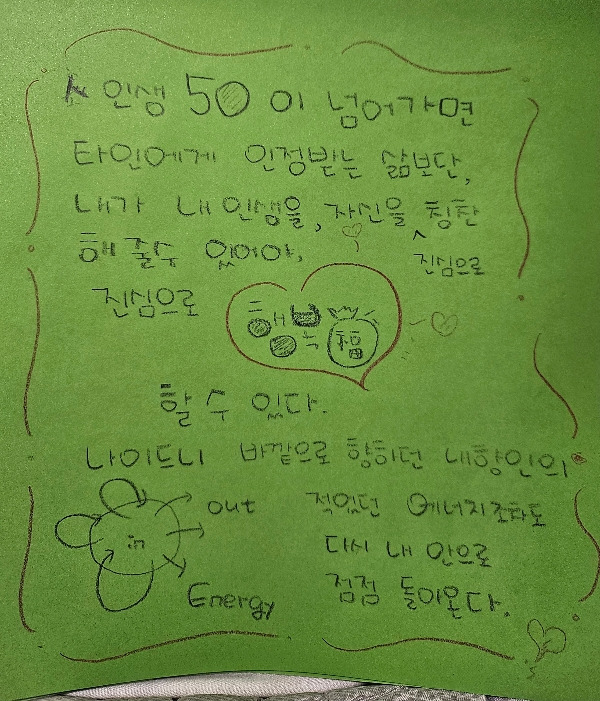 인생 50 이 넘어가면
타인에게 인정받는 삶보단,
내가 내 인생을, 자신을 칭찬
해 줄수 있어야,
진심으로
진심으로
행복 福
할 수 있다.
나이드니 바깥으로 향하던 내향인의
out 적었던 에너지조차도
in
다시 내 안으로
Energy 점점 돌아온다.